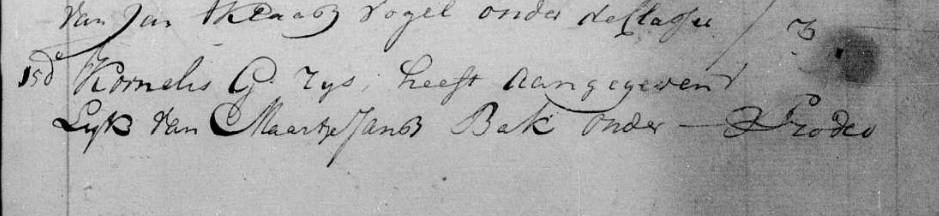 van Jan Klaasz Vogel onder de Classe / 3
15d° Kornelis G: Tys, heeft aangegeven t
Lyk van Maartje Jans Bak onder — Prodeo